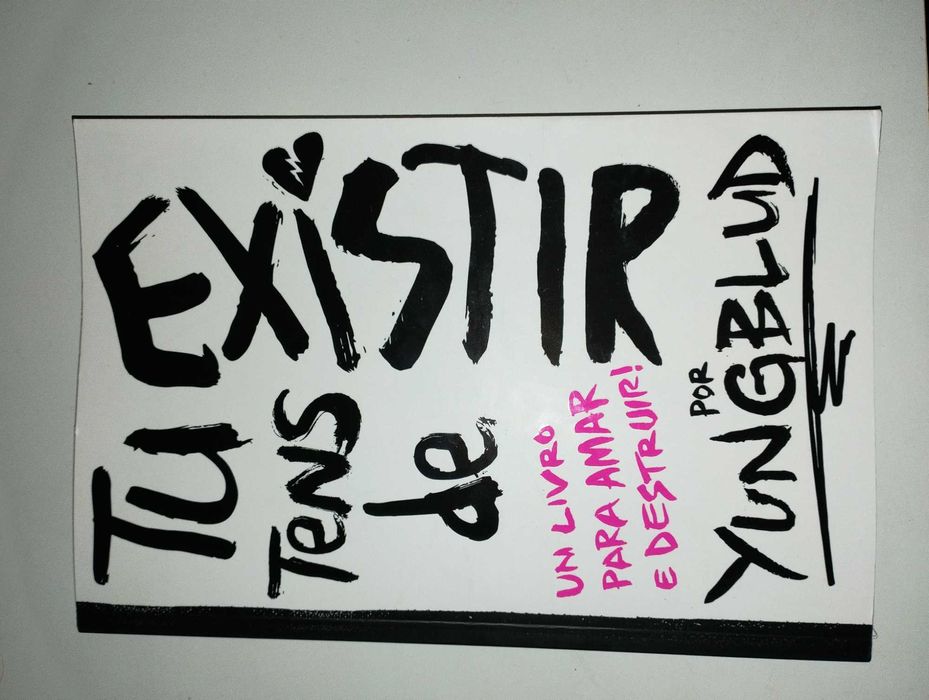 TU
TeNS
de
EXiSTIR
UM LIVRO
PARA AMAR
E DESTRUIR!
POR
YUNGBLUD